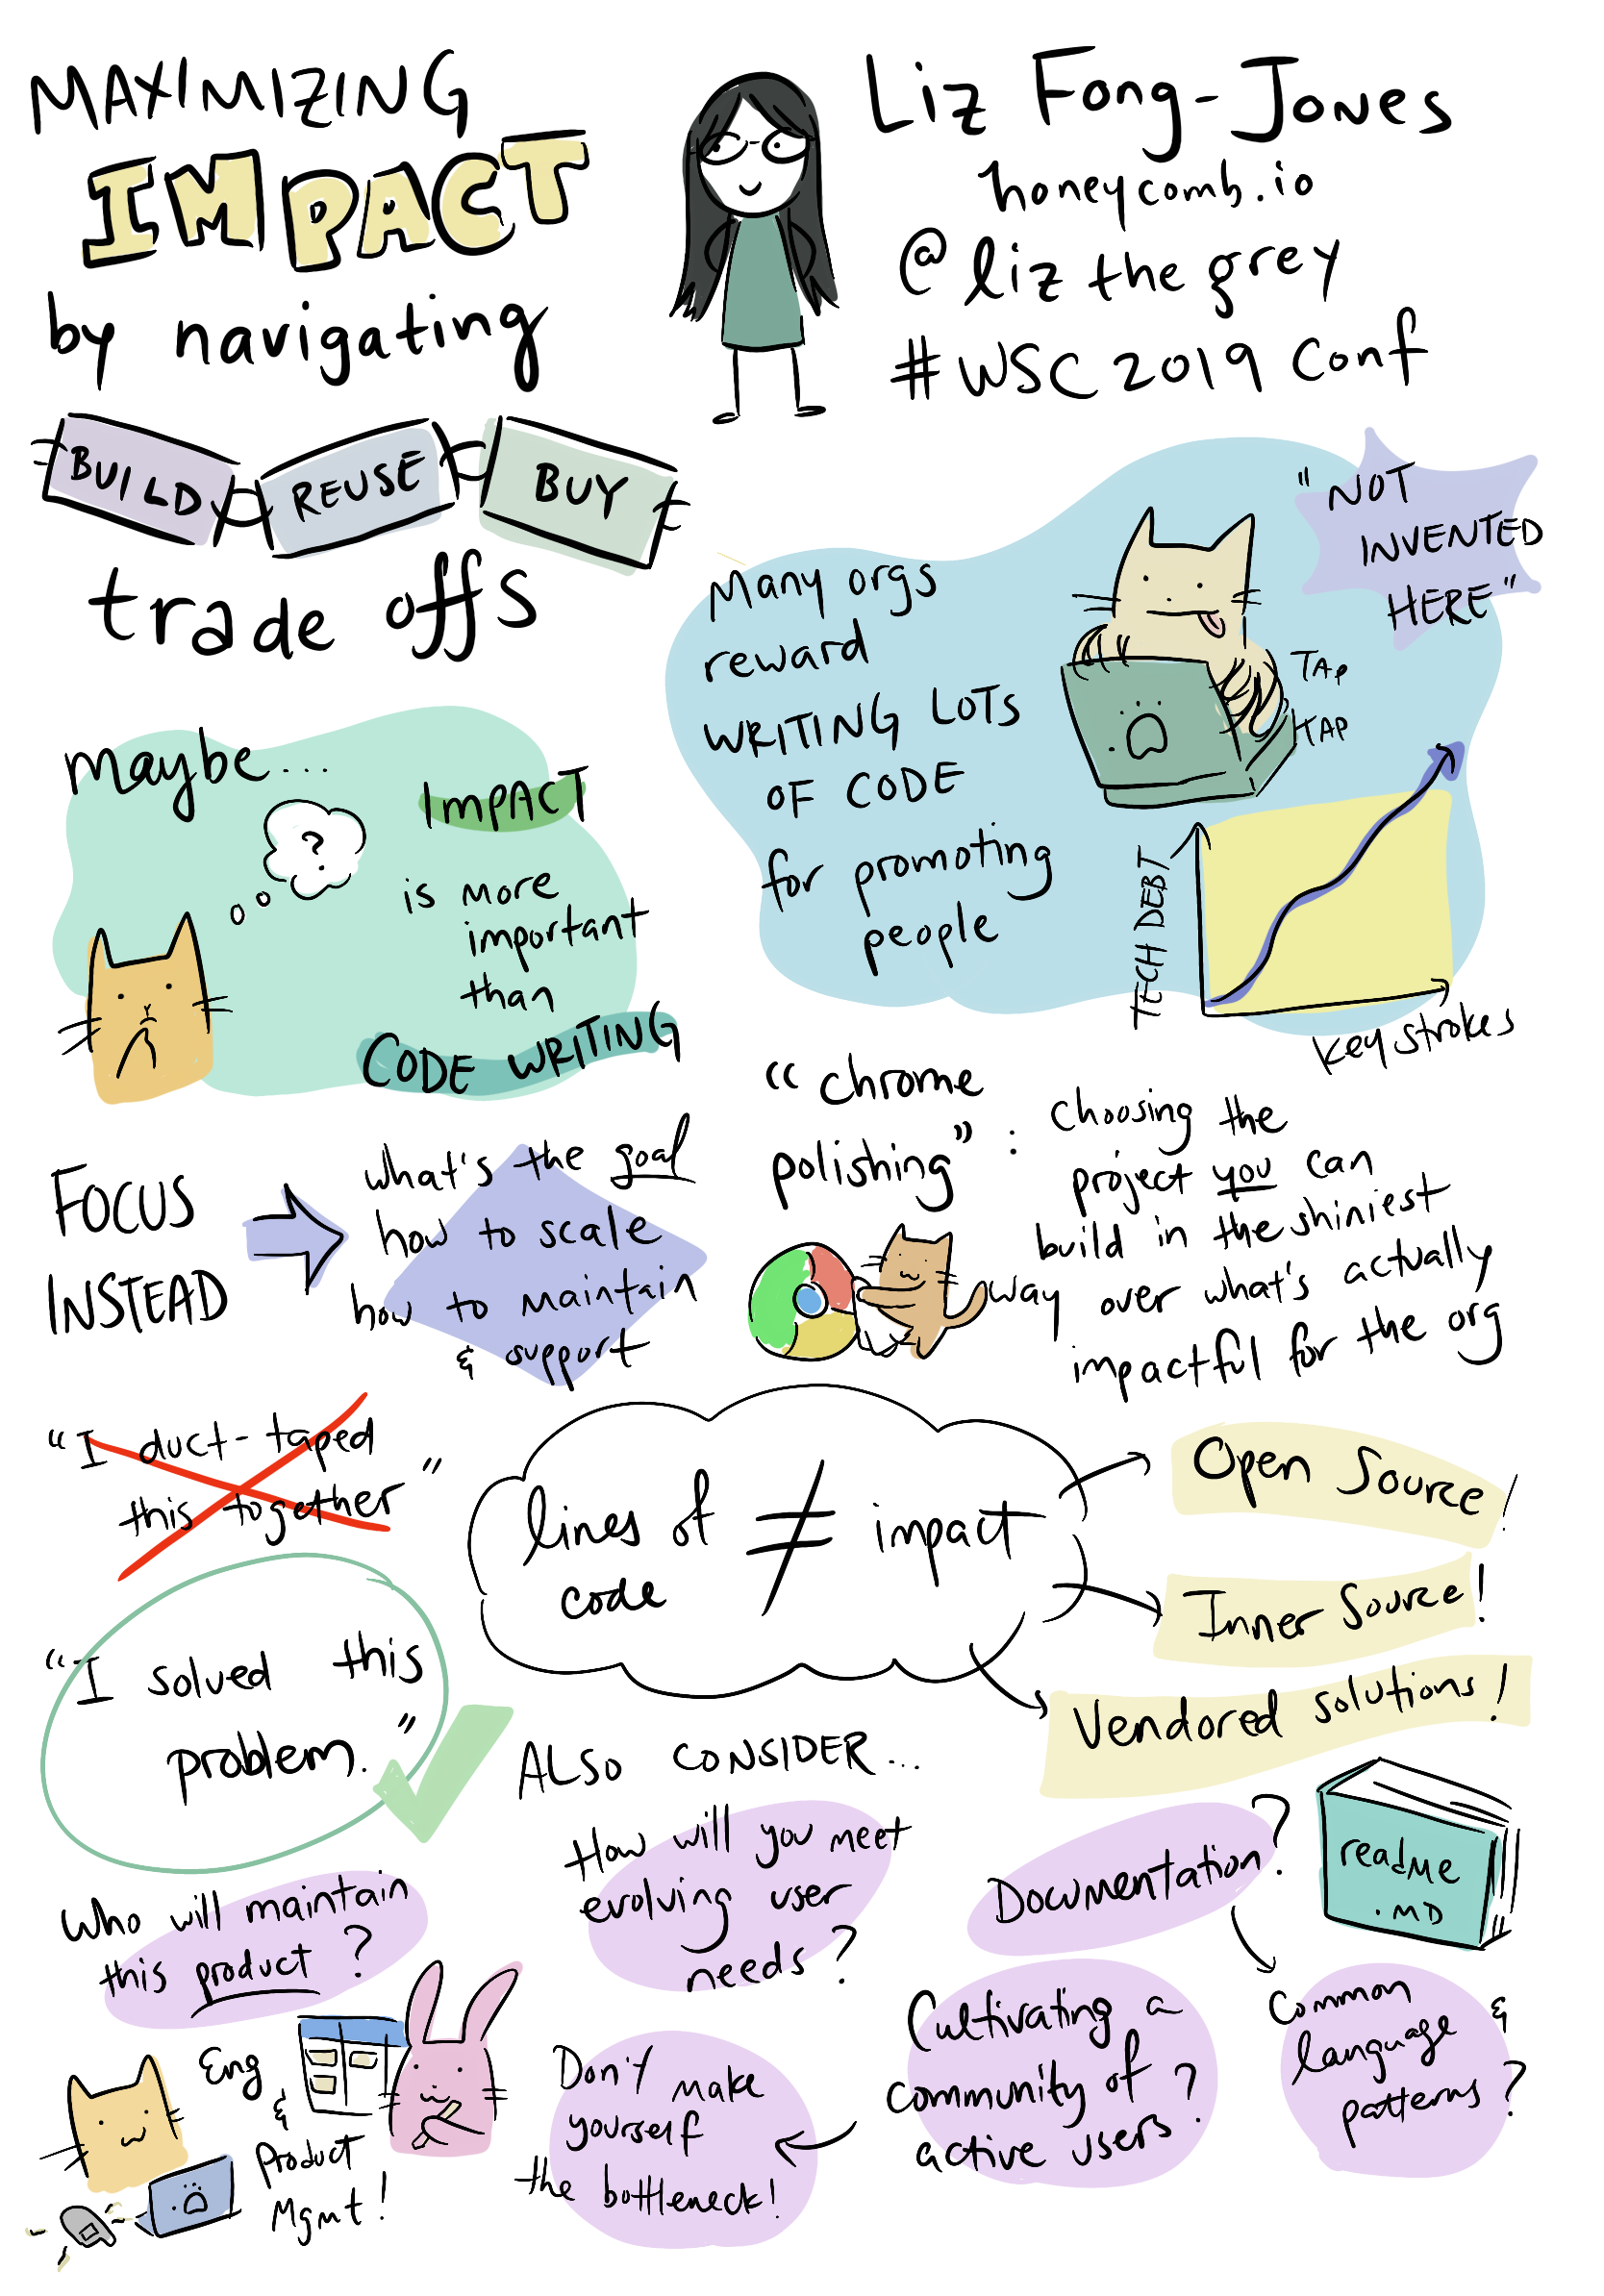 MAXIMIZING
IMPACT
by navigating
BUILD
REUSE
BUY
trade offs
Liz Fong-Jones
honeycomb.io
@lizthegrey
#WSC2019Conf
Many orgs
reward
WRITING LOTS
OF CODE
for promoting
people
"NOT
INVENTED
HERE"
TAP
TAP
TECH DEBT
keystrokes
maybe...
?
IMPACT
is more
important
than
CODE WRITING
"chrome
polishing" :
choosing the
project you can
build in the shiniest
way over what's actually
impactful for the org
FOCUS
INSTEAD
what's the goal
how to scale
how to maintain
& support
"I duct-taped
this together"
"I solved this
problem."
lines of
code
≠
impact
Open Source!
Inner Source!
Vendored solutions!
ALSO CONSIDER...
Who will maintain
this product?
Eng
&
Product
Mgmt!
How will you meet
evolving user
needs?
Documentation?
readme
.MD
Common
language &
patterns?
Cultivating a
community of
active users?
Don't make
yourself
the bottleneck!